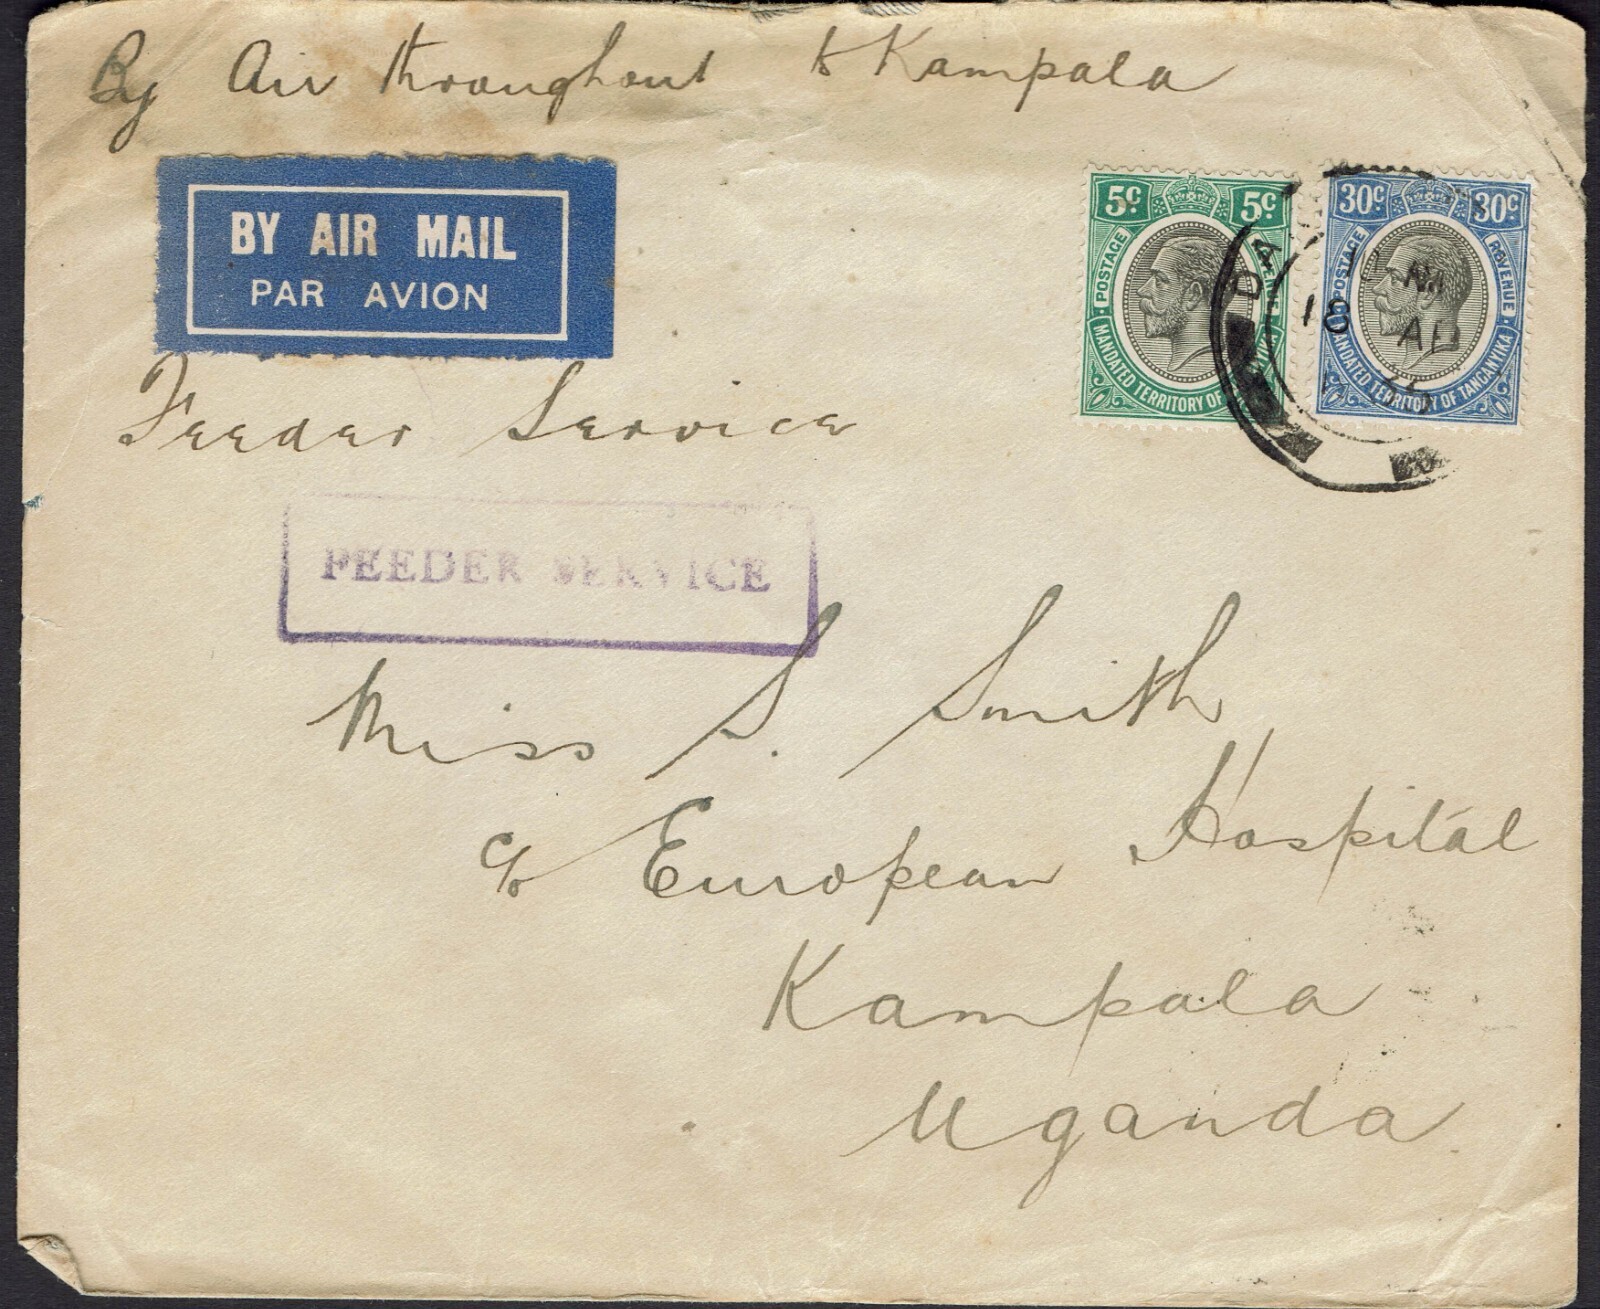 By Air throughout to Kampala
BY AIR MAIL
PAR AVION
5c 5c
POSTAGE
MANDATED TERRITORY OF
30c 30c
POSTAGE REVENUE
MANDATED TERRITORY OF TANGANYIKA
DA
18
Feeder Service
FEEDER SERVICE
Miss S. Smith
c/o European Hospital
Kampala
Uganda